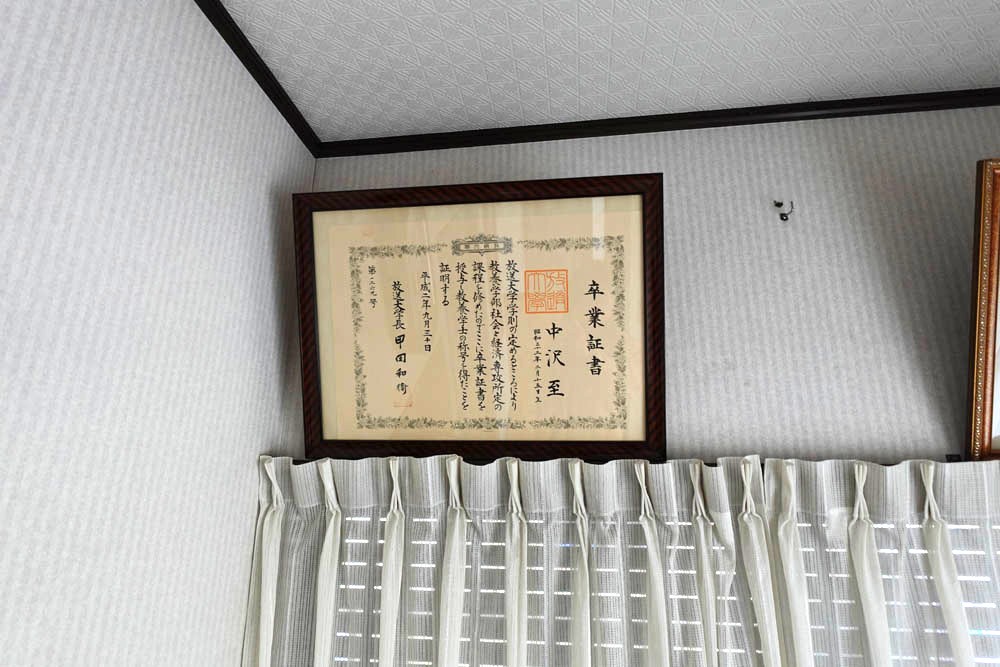 卒業証書
中沢至
放送大学学則の定めるところにより
教養学部社会と経済専攻所定の
課程を修めたのでここに卒業証書を
授与し教養学士の称号を得たことを
証明する
平成二年九月三十日
放送大学長